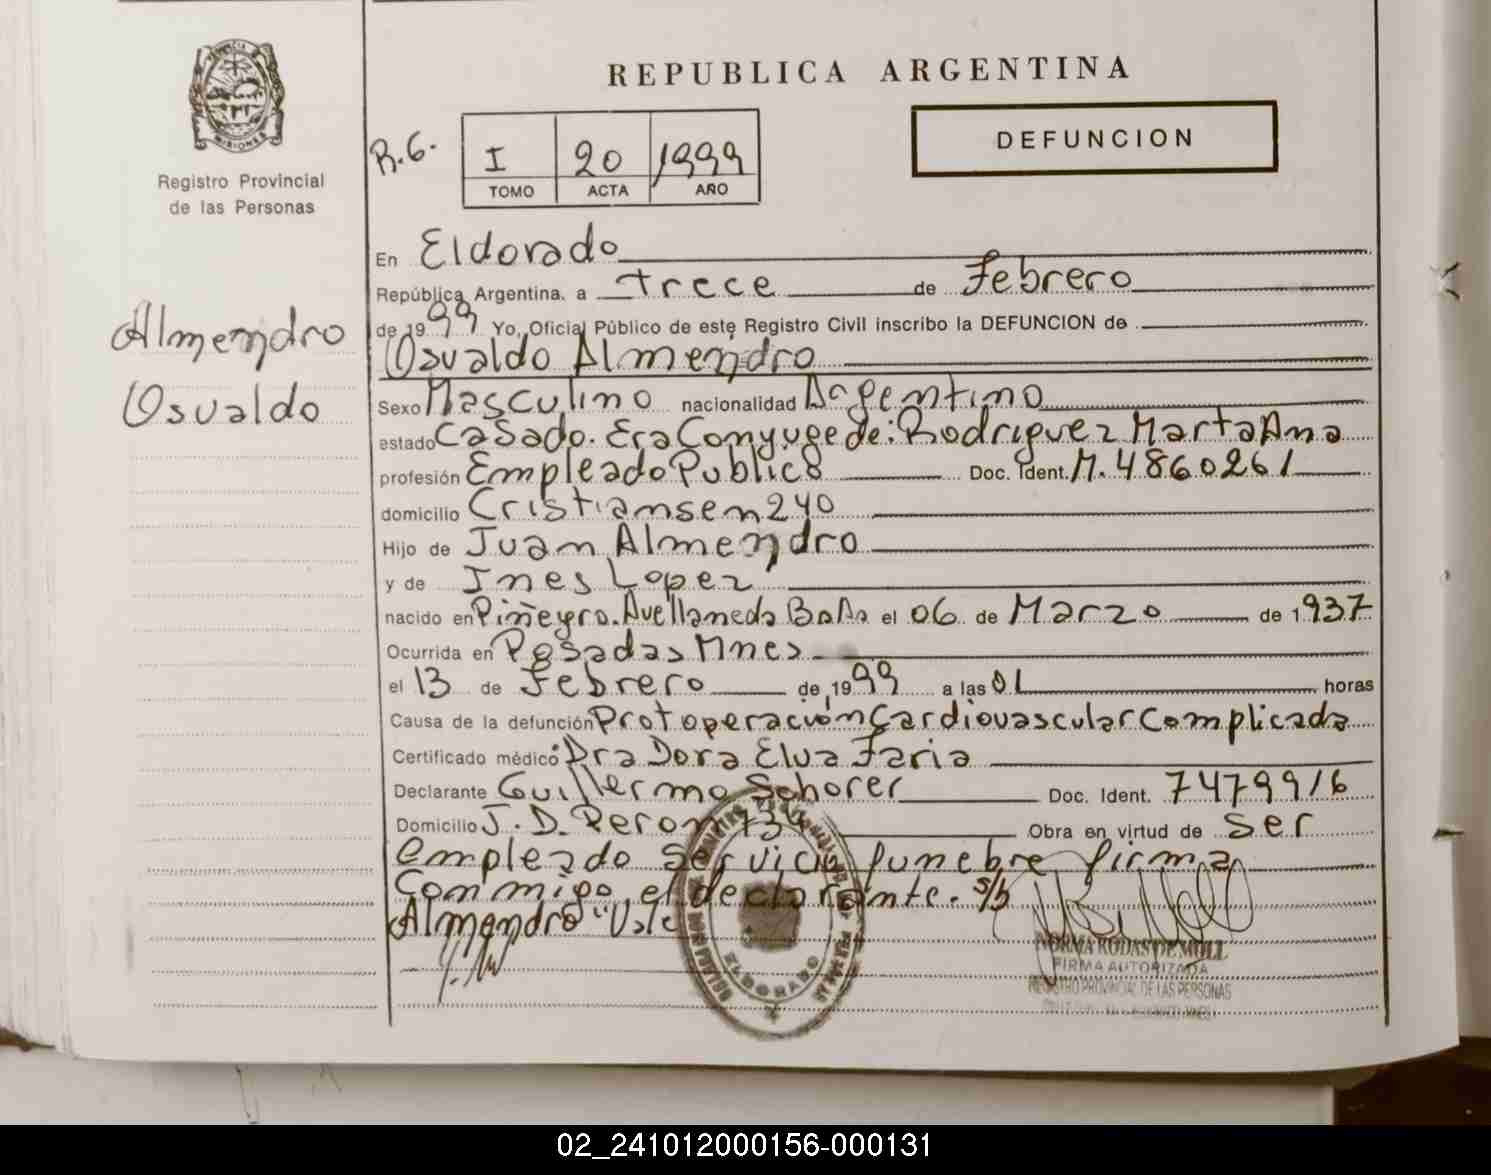 REPUBLICA ARGENTINA
PROVINCIA DE MISIONES
Registro Provincial
de las Personas
R.G.
I 20 1999
TOMO ACTA AÑO
DEFUNCION
Almendro
Osvaldo
En Eldorado
República Argentina, a trece de Febrero
de 1999 Yo, Oficial Público de este Registro Civil inscribo la DEFUNCION de
Osvaldo Almendro
Sexo Masculino nacionalidad Argentino
estado Casado. Era Conyuge de: Rodriguez Marta Ana
profesión Empleado Publico Doc. Ident. M. 4860261
domicilio Cristiansen 240
Hijo de Juan Almendro
y de Ines Lopez
nacido en Piñeyro. Avellaneda BsAs el 06 de Marzo de 1937
Ocurrida en Posadas Mnes
el 13 de Febrero de 1999 a las 01 horas
Causa de la defunción Protoperación Cardiovascular Complicada
Certificado médico: Dra Dora Elva Faria
Declarante Guillermo Schorer Doc. Ident. 7479916
Domicilio J. D. Peron 734 Obra en virtud de ser
empleado servicio funebre firma
Conmigo el declarante. s/b
Almendro "Vale
NORMA RODAS DE MOLL
FIRMA AUTORIZADA
REGISTRO PROVINCIAL DE LAS PERSONAS
ELDORADO
02_241012000156-000131